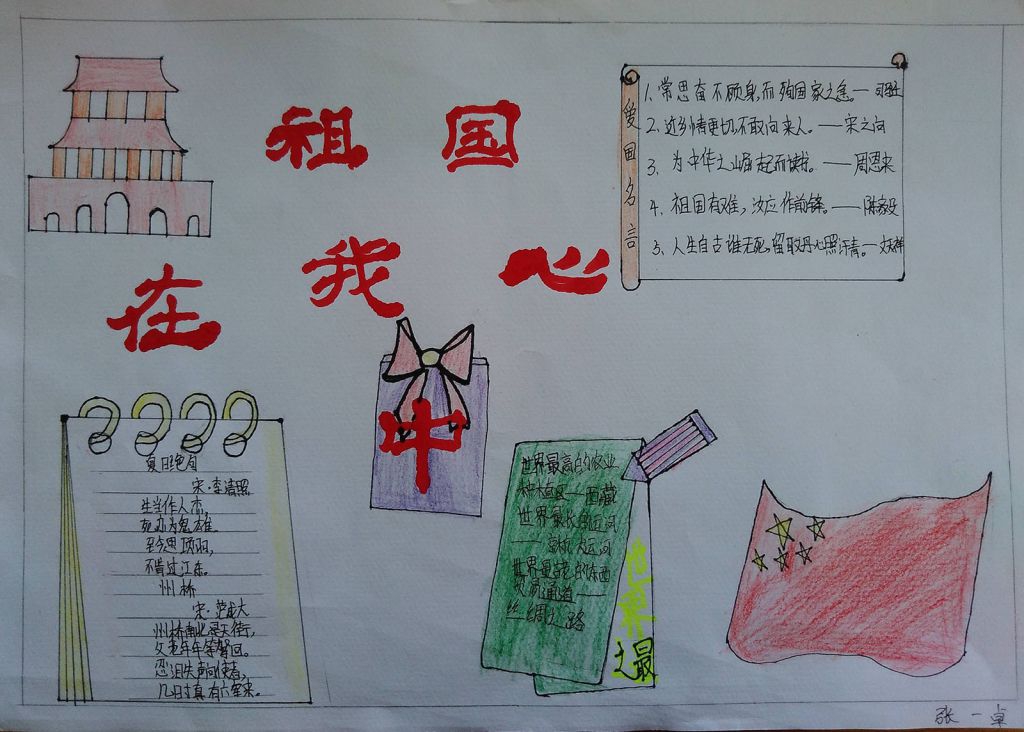 祖国
在我心
中
爱国名言
1、常思奋不顾身,而殉国家之急。—司马迁
2、近乡情更切,不敢问来人。——宋之问
3、为中华之崛起而读书。——周恩来
4、祖国有难,汝应作前锋。——陈毅
5、人生自古谁无死,留取丹心照汗青。—文天祥
夏日绝句
宋·李清照
生当作人杰,
死亦为鬼雄。
至今思项羽,
不肯过江东。
州桥
宋·范成大
州桥南北是天街,
父老年年等驾回。
忍泪失声问使者,
几时真有六军来。
世界最高的农业
种植区——西藏
世界最长的运河
——京杭大运河
世界最古老的东西
贸易通道——
丝绸之路
世界之最
张一卓